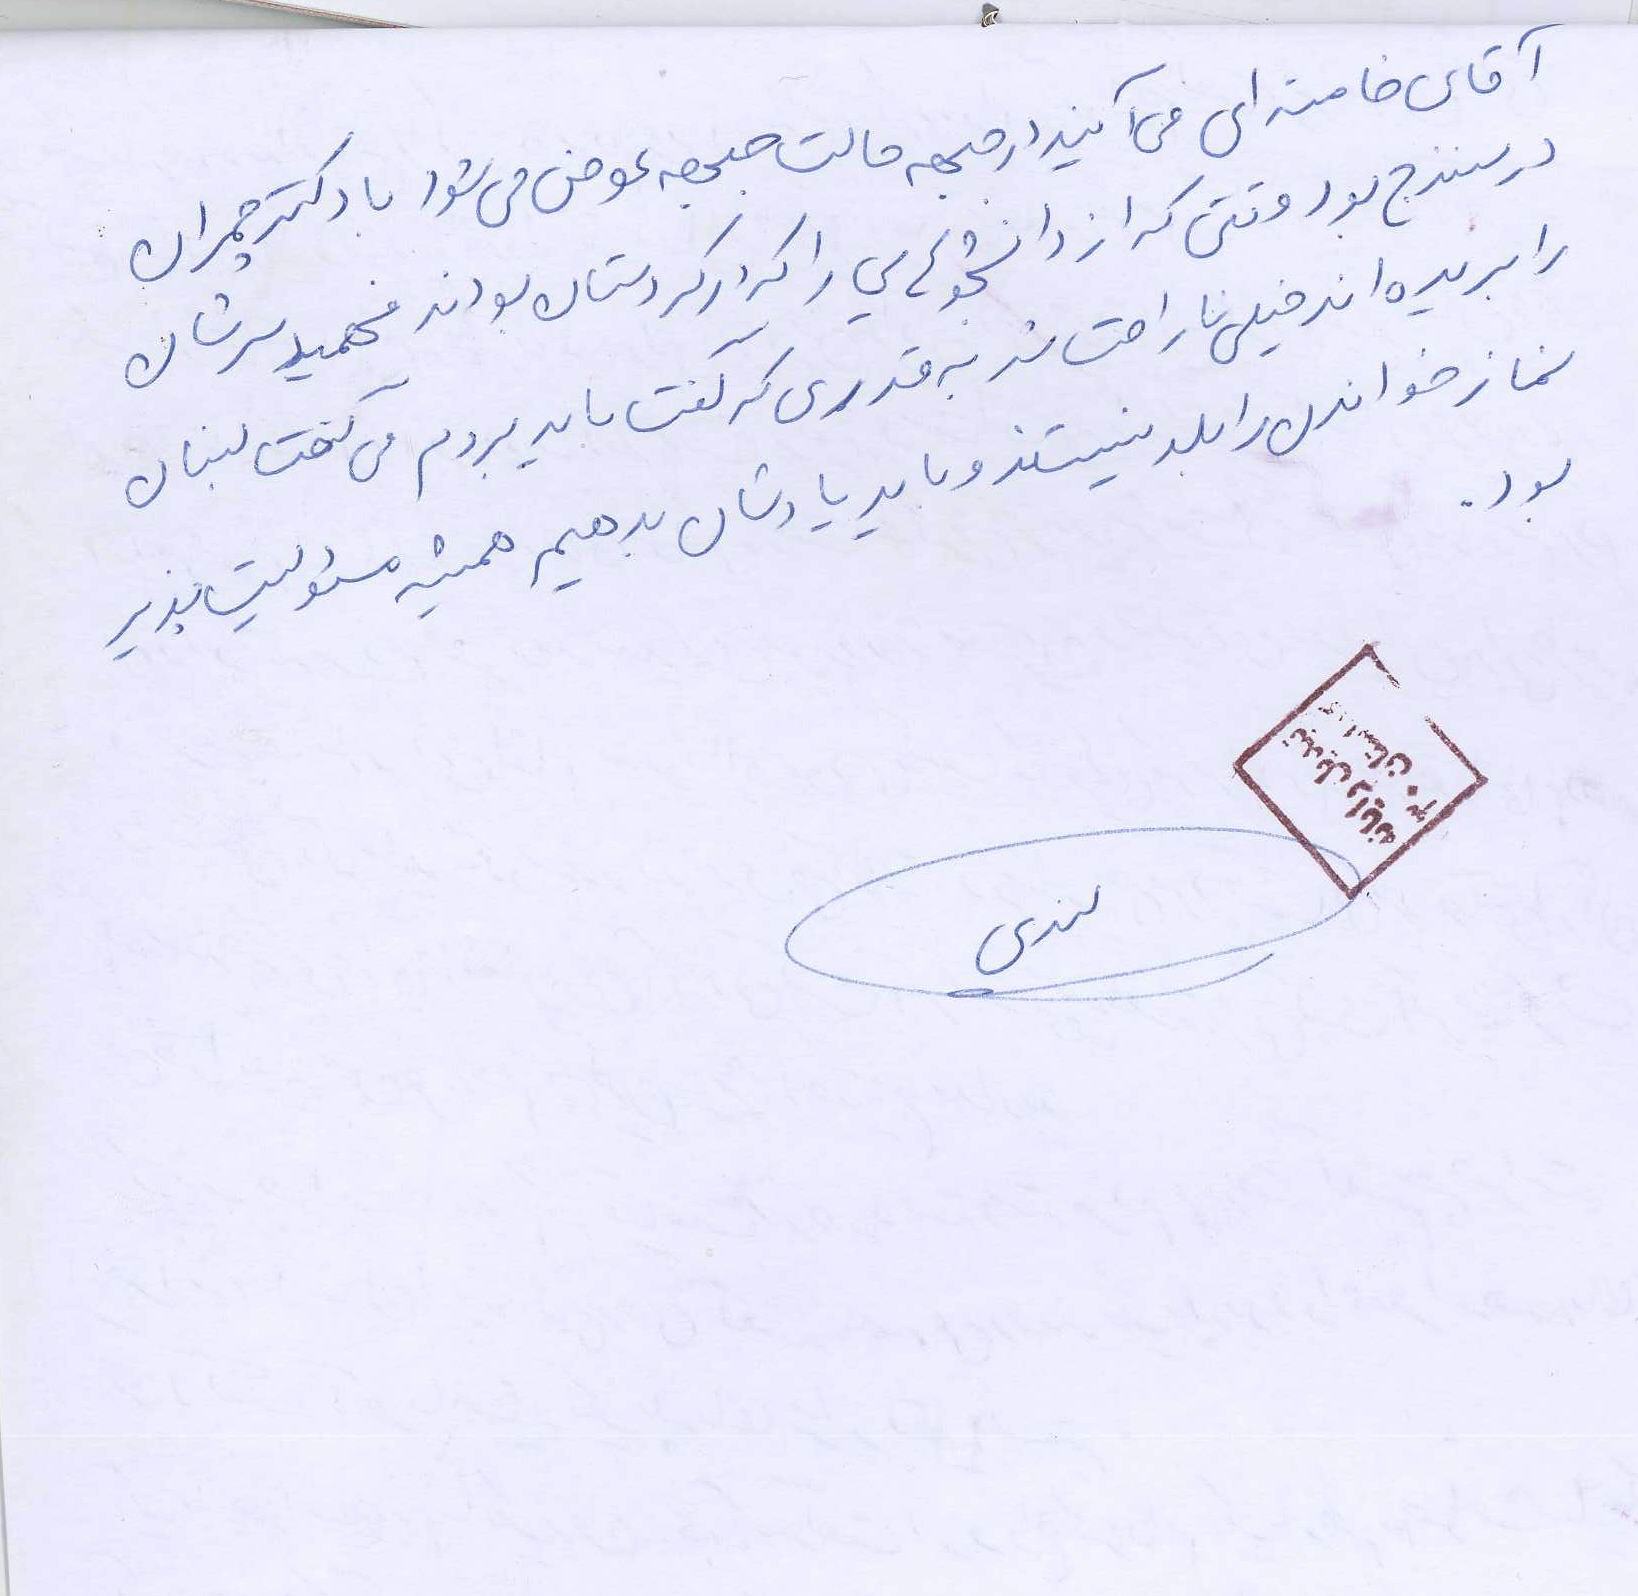 آقای خامنه ای می آیند در جبهه حالت جبهه عوض می شود با دکتر چمران
در سنندج بود وقتی که از دانشجوهایی را که در کردستان بودند فهمید سرشان
را بریده اند خیلی ناراحت شد به قدری که گفت باید بروم می گفت لبنان
نماز خواندن را بلد نیستند و باید یادشان بدهیم همیشه مسئولیت پذیر
بود.